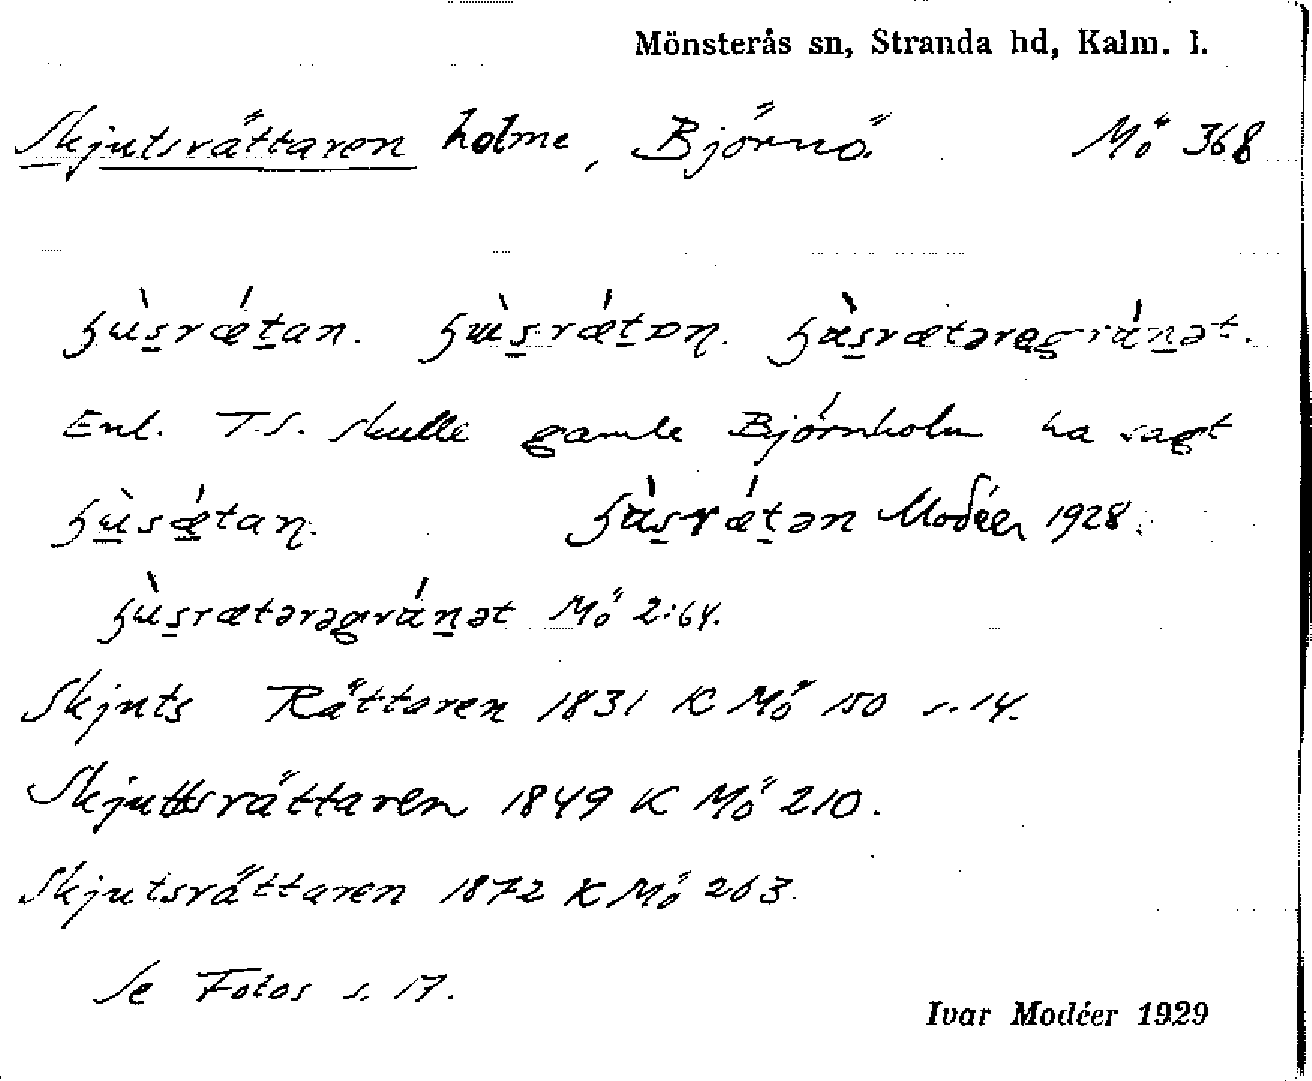 Mönsterås sn, Stranda hd, Kalm. l.
Skjutsrättaren holme, Björnö. Mö 368
Enl. T.S. skulle gamle Björnholm ha sagt
Modéer 1928.
Mö 2:64.
Skjuts Rättaren 1831 K Mö 150 s. 14.
Skjuttsrättaren 1849 K Mö 210.
Skjutsrättaren 1872 K Mö 263.
Se Fotos s. 17.
Ivar Modéer 1929